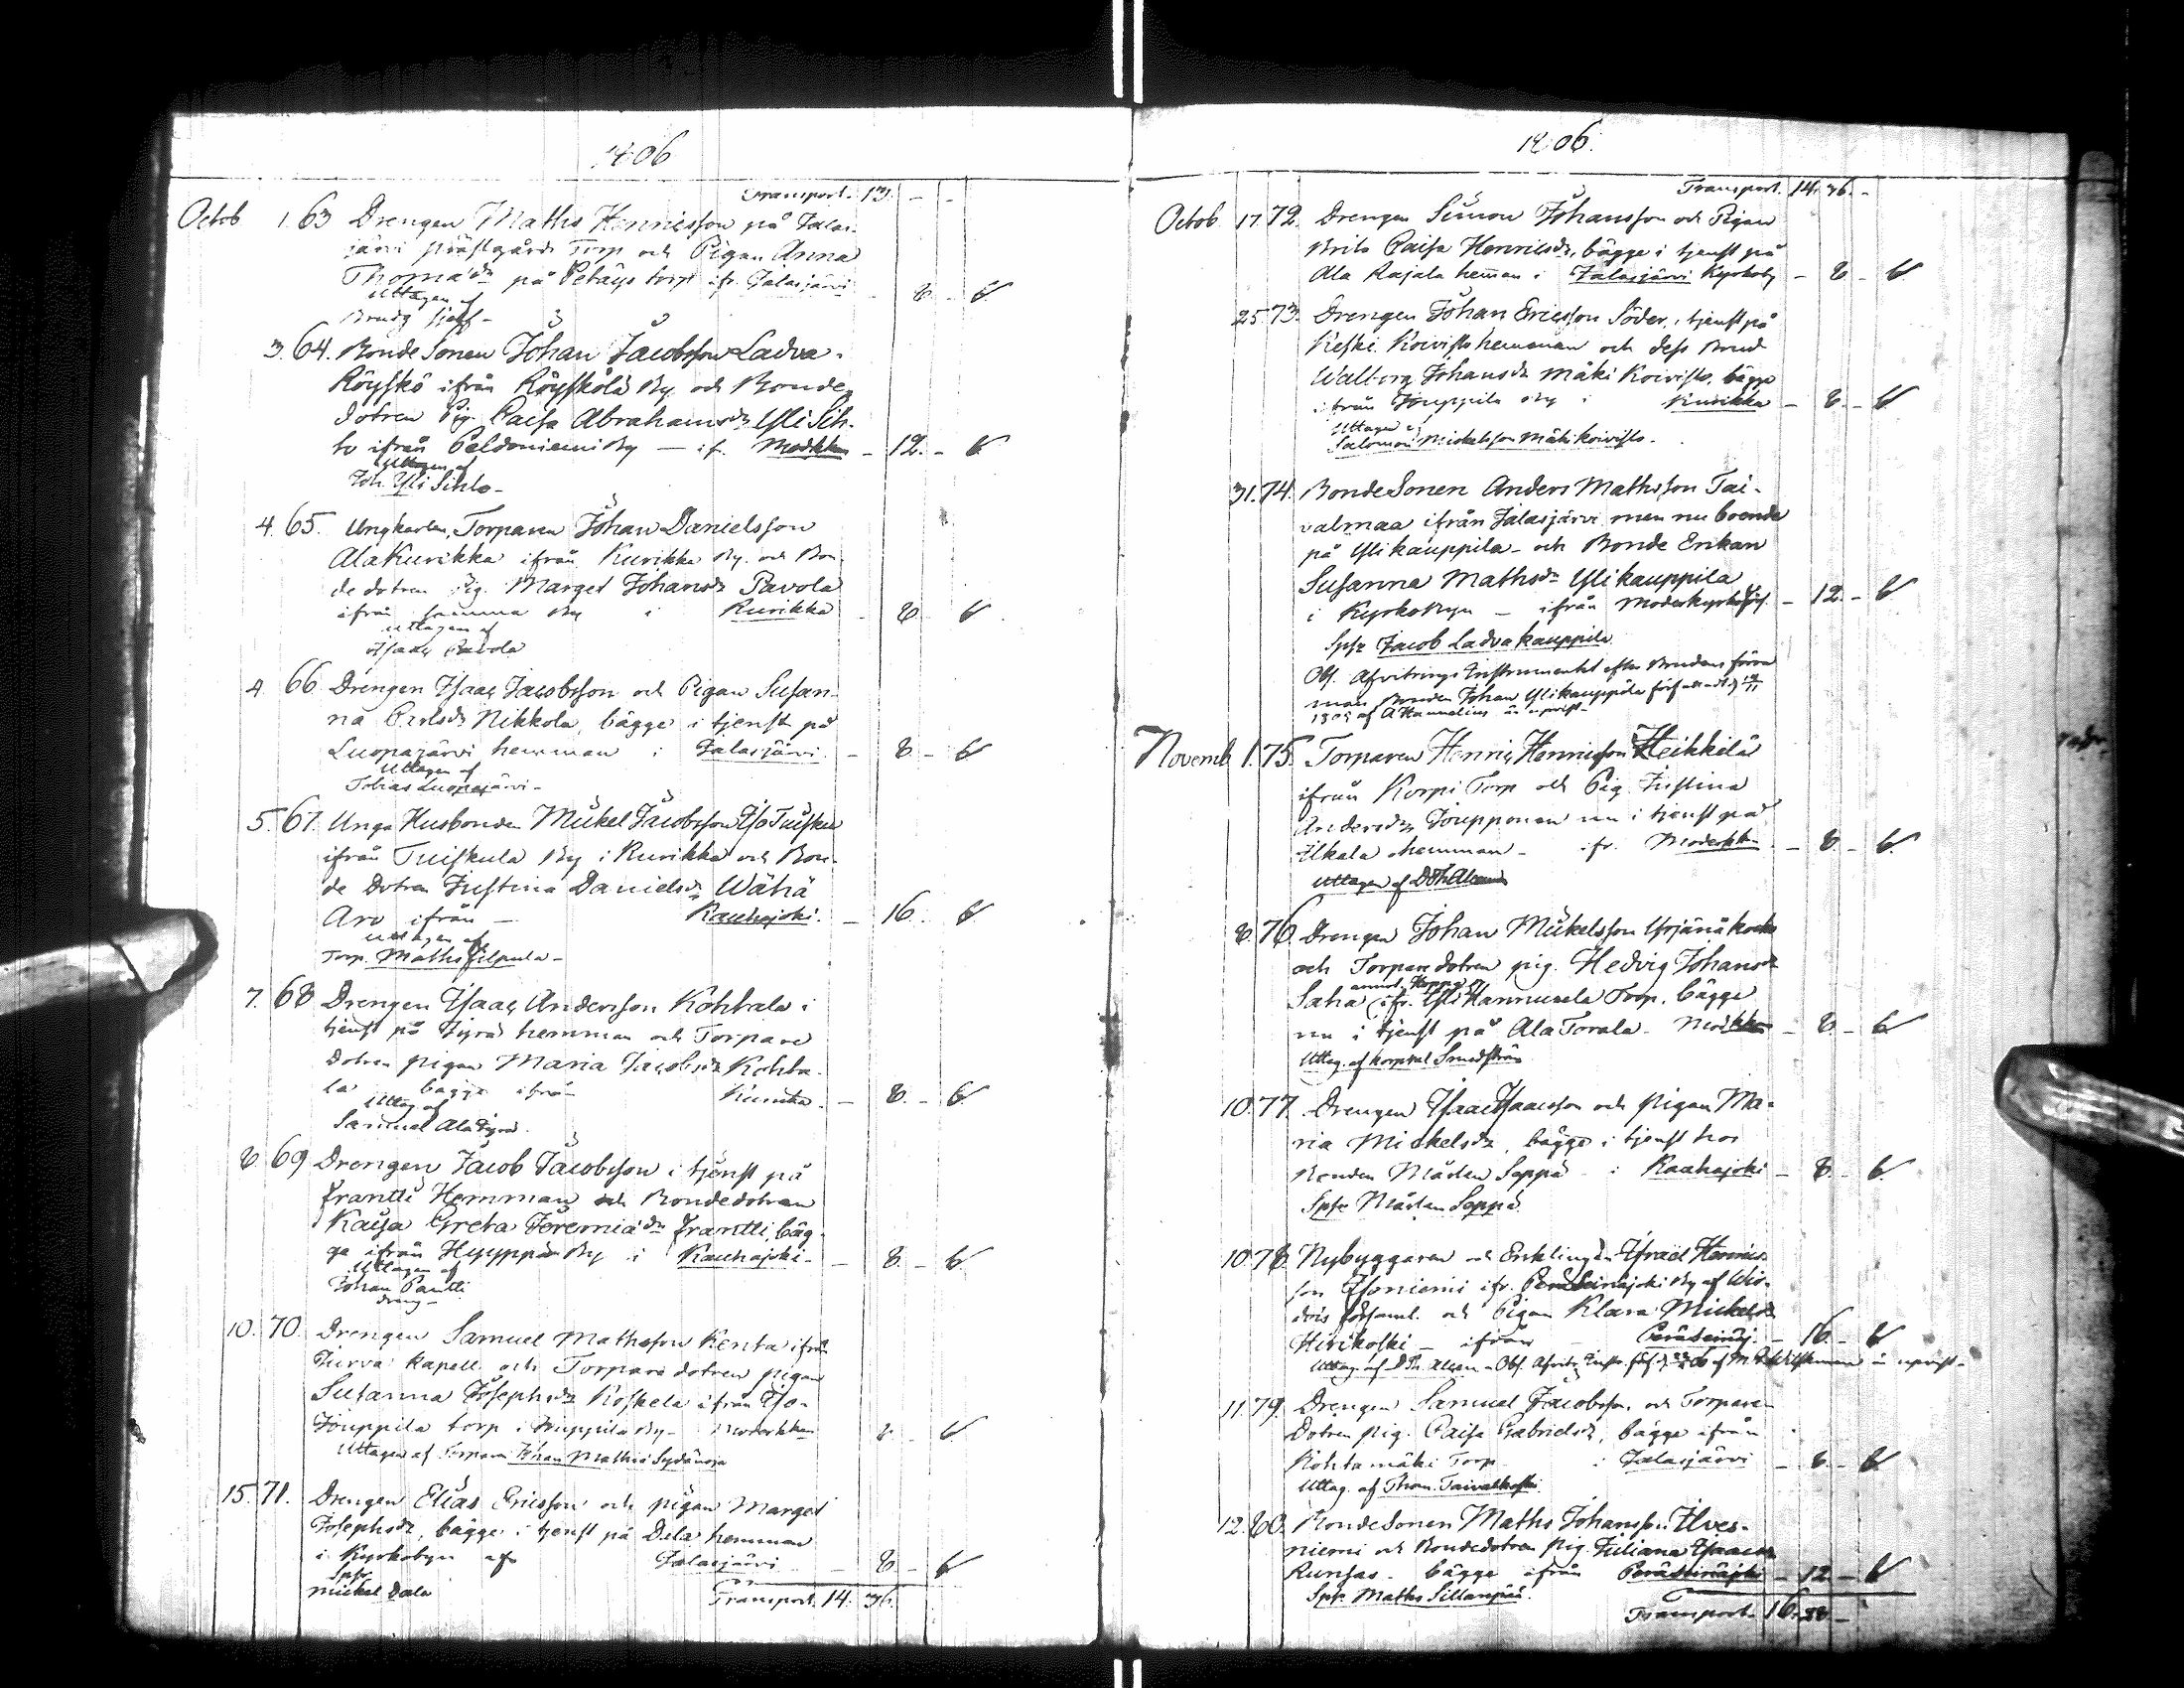 1806
Transport. 13. - -
Octob 1. 63 Drengen Maths Henricsson på Jalas-
järvi prästgårds Torp och Pigan Anna
Thomæ dr på Petäys torp ifr. Jalasjärvi - 8 -
Uttagen af
Brudg sjelf -
3. 64. Bonde Sonen Johan Jacobsson Ladva-
Röyskö ifrån Röyskölä By och Bonde
dotren Pig. Caisa Abrahamsdr Yli Sih-
to ifrån Peldoniemi By - if. Moderkkan - 12. -
Uttagen af
Joh. Yli Sihto -
4. 65. Ungkarlen, Torparen Johan Danielsson
AlaKurikka ifrån Kurikka By. och Bon-
de dotren Pig. Marget Johansdr Pavola
ifrån samma By i Kurikka - 8 -
uttagen af
Isaac Pavola
4. 66 Drengen Isaac Jacobsson och Pigan Susan-
na Carlsdr Nikkola, bägge i tjenst på
Luopajärvi hemman i Jalasjärvi - 8 -
Uttagen af
Tobias Luopajärvi -
5. 67. Unga Husbonden Mickel Jacobsson Iso Tuisku
ifrån Tuiskula By i Kurikka och Bon-
de Dotren Justina Danielsdr Wähä
Aro ifrån - Kauhajoki. - 16.
uttagen af
Torp. Maths Filpula -
7. 68 Drengen Isaac Andersson Kohtala i
tjenst på Jyrä hemman och Torpare
dotren pigan Maria Jacobsdr Kohta-
la bägge ifrån Kurikka. - 8. -
Uttag af
Samuel Ala Jyrä.
8 69 Drengen Jacob Jacobsson i tjenst på
Frantti Hemman och Bondedotran
Kaisa Greta Jeremiædr Frantti, bäg-
ge ifrån Hyyppä By i Kauhajoki - 8. -
Uttagen af
Johan Pantti
dräng -
10. 70. Drengen Samuel Mathsson Kenta ifrån
Jurva kapell. och Torpare dotren pigan
Susanna Josephsdr Koskela ifrån Iso-
Jouppila torp i Juppila By - Moderkkan 8 -
Uttagen af Torparen Johan Mathss Sydänoja
15. 71. Drengen Elias Ericsson och pigan Marget
Josephsdr, bägge i tjenst på Dala hemman
i Kyrkobyn af Jalasjärvi - 8 -
Spr.
Mickel Dala
Transport. 14. 36.
1806.
Transport. 14. 36. -
Octob. 17. 72. Drengen Simon Johansson och Pigan
Brita Caisa Henricsdr, bägge i tjenst på
Ala Rajala heman i Jalasjärvi Kyrkoby - 8 -
25. 73. Drengen Johan Ericsson Söder, i tjenst på
Keski Koivisto hemman och dess Brud
Walborg Johansdr Mäki Koivisto, bägge
ifrån Jouppila By i Kurikka - 8. -
Uttagen af
Salomon Mickelsson Mäkikoivisto -
31. 74. Bonde Sonen Anders Mathsson Tai-
valmaa ifrån Jalasjärvi men nu boende
på Ylikauppila - och Bonde Enkan
Susanna Mathsdr Ylikauppila
i KyrkoByn - ifrån - 12. -
Spr Jacob Ladvakauppila
Obs. Afvitrings Instrumentet efter Brudens förra
man Bonden Johan Ylikauppila
Novemb. 1. 75. Torparen Henric Henricsson Heikkilä
ifrån Korpi Torp och Pig. Justina
Andersdr Jouppanen nu i tjenst på
Ilkala hemman - ifr. Moderkk - 8. -
Uttagen af
8. 76. Drengen Johan Mickelsson Yrjänäkoski
och Torpare dotren pig. Hedvig Johansdr
Saha ifr. Yli Hannuxela Torp, bägge
nu i tjenst på Ala Torala - Moderkkan - 8. -
Uttag. af korpral Sundström
10. 77. Drengen Isaac Isaacsson och Pigan Ma-
ria Mickelsdr, bägge i tjenst hos
Bonden Mårten Seppä - i Kauhajoki - 8. -
Spr Mårten Seppä.
10. 78. Nybyggaren och Enklingen Israel Henrics-
son Isoniemi ifr. Peräseinäjoki By af Wir-
dois församl. och Pigan Klara Mickelsdr
Hirikoski - ifrån Peräseinäj. - 16. -
11. 79. Drengen Samuel Jacobsson och Torpare
Dotren pig. Caisa Gabrielsdr, bägge ifrån
Kohtamäki Torp i Jalasjärvi - 8. -
Uttag. af Thom. Taivalkoski.
12. 80. Bonde Sonen Maths Johansson Ilves-
niemi och Bondedotren Pig. Juliana Isaacsdr
Runsas - bägge ifrån Peräseinäjoki - 12 -
Spr Maths Sillanpää.
Transport. 16. 28. -